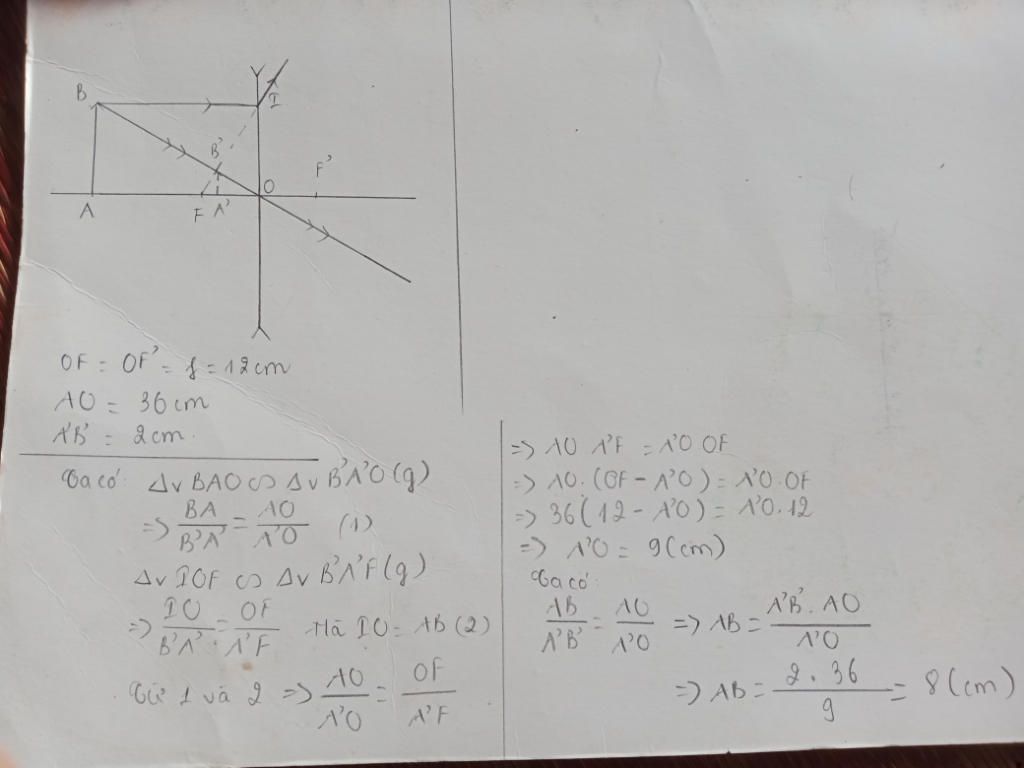 B
I
B'
O
F'
A
F A'
OF = OF' = f = 12cm
AO = 36cm
A'B' = 2cm.
Ta có: Δv BAO ∽ Δv B'A'O (g)
=> BA/B'A' = AO/A'O (1)
Δv IOF ∽ Δv B'A'F (g)
=> IO/B'A' = OF/A'F Mà IO = AB (2)
Từ 1 và 2 => AO/A'O = OF/A'F
=> AO A'F = A'O OF
=> AO. (OF - A'O) = A'O.OF
=> 36(12 - A'O) = A'O.12
=> A'O = 9(cm)
Ta có:
AB/A'B' = AO/A'O => AB = A'B'.AO/A'O
=> AB = 2.36/9 = 8(cm)